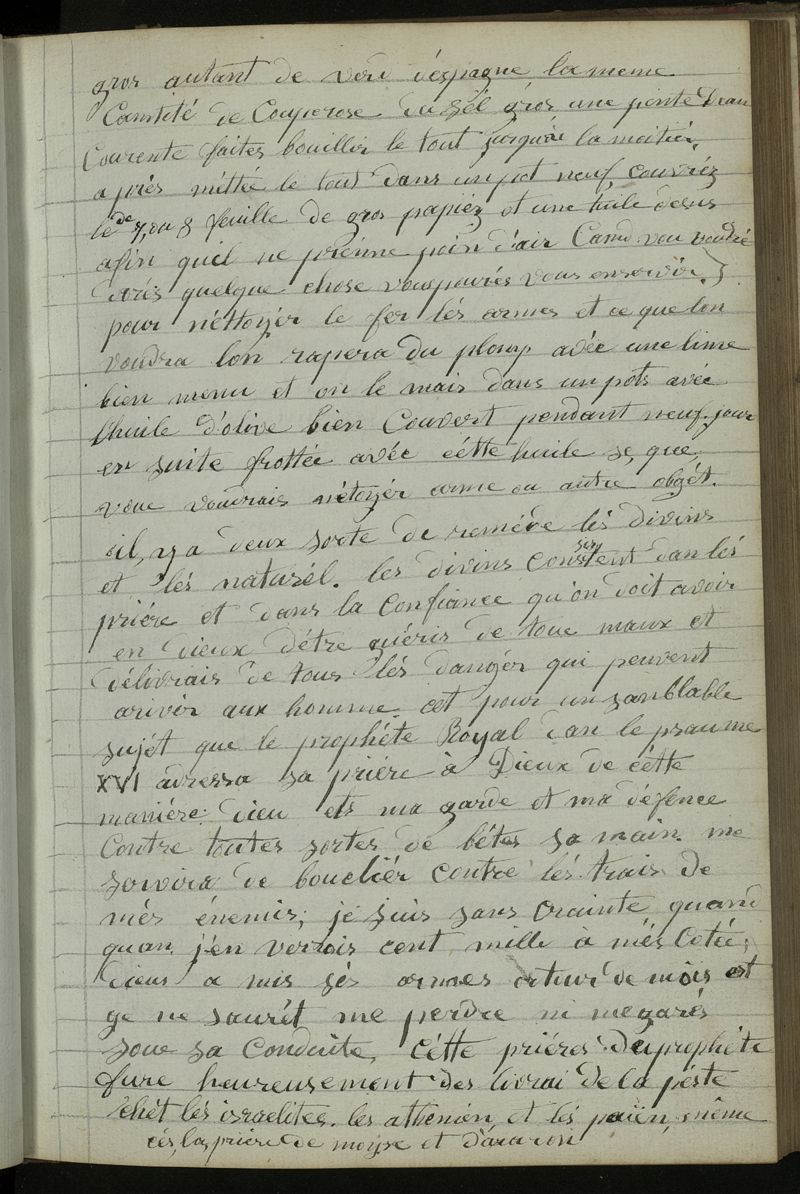 gros autant de verd déspagne la meme
Cantité de Couperose du sél gros une pinte Deau
Courente faites bouillir le tout jusquàu la moitiér,
a priés méttée le tout dans un pot neuf couvréz
le de 7, ou 8 feuille de gros papiéz et une tuile desus
afin quil ne prienne poin d'air Cand vou voudré
dorés quelque chose vouspourés vous enservir.}
pour néttoyér le fer lés armes et ce que lon
voudra lon rapera du plomp avéc une lime
bien menu et on le mais dans un pots avéc
lhuile d'olive bien Couvert pendant neuf-jour
en suite frottée avéc cétte huile se, que,
vous voudrais nétoyér arme ou autre objét.
il, y a deux sorte de reméde lés divins
et lés naturél. les divins consistent dan lés
priére et dans la Confiance qu'on doit avoir
en dieux d'étre guéris de tous maux et
délivrais de tous lés dangér qui peuvent
arivér aux homme, cet pour un sanblable
sujét que le prophéte Royal dan le psaume
XVI adressa sa priére à Dieux de cétte
maniére: dieu éts ma garde et ma défence
Contre toutes sortes de bétes sa main. me
servira de bouclièr contre lés trais de
més énemis; je suis sans crainte quand
quan j'en verrois cent mille à més Cotée;
dieux a mis sés armes autour de mois est
ge ne saurét me perdre ni megarés
sous sa conduite, cétte priéres du prophéte
fure heureusement des livrai de la péste
chét lés israelites. les athenien, et lés païén, même
cés, las priére de moyse et d'araron